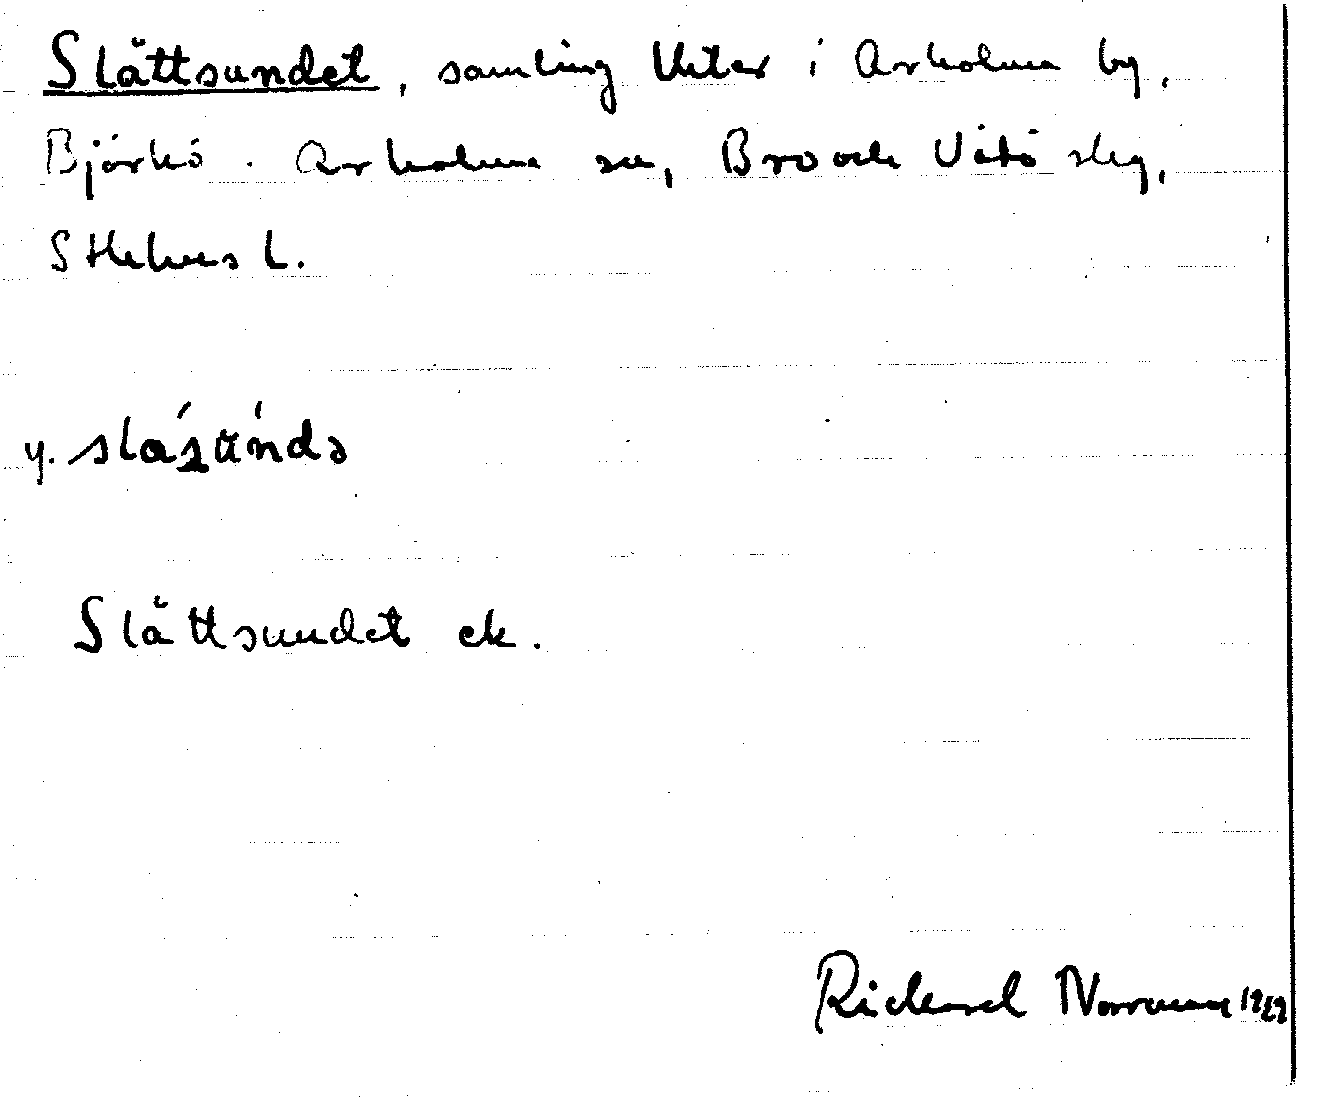 Slättsundet, samling tomter i Arholma by,
Björkö-Arholma sn, Bro och Vätö skg,
Sthlms l.
y. slásúndə
Slättsundet ek.
Rickard Norrman